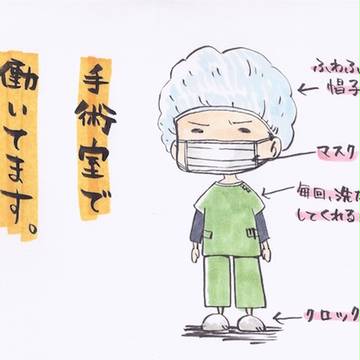 手術室で
働いてます。
ふわふ
帽子
マスク
毎回、洗
してくれる
クロック